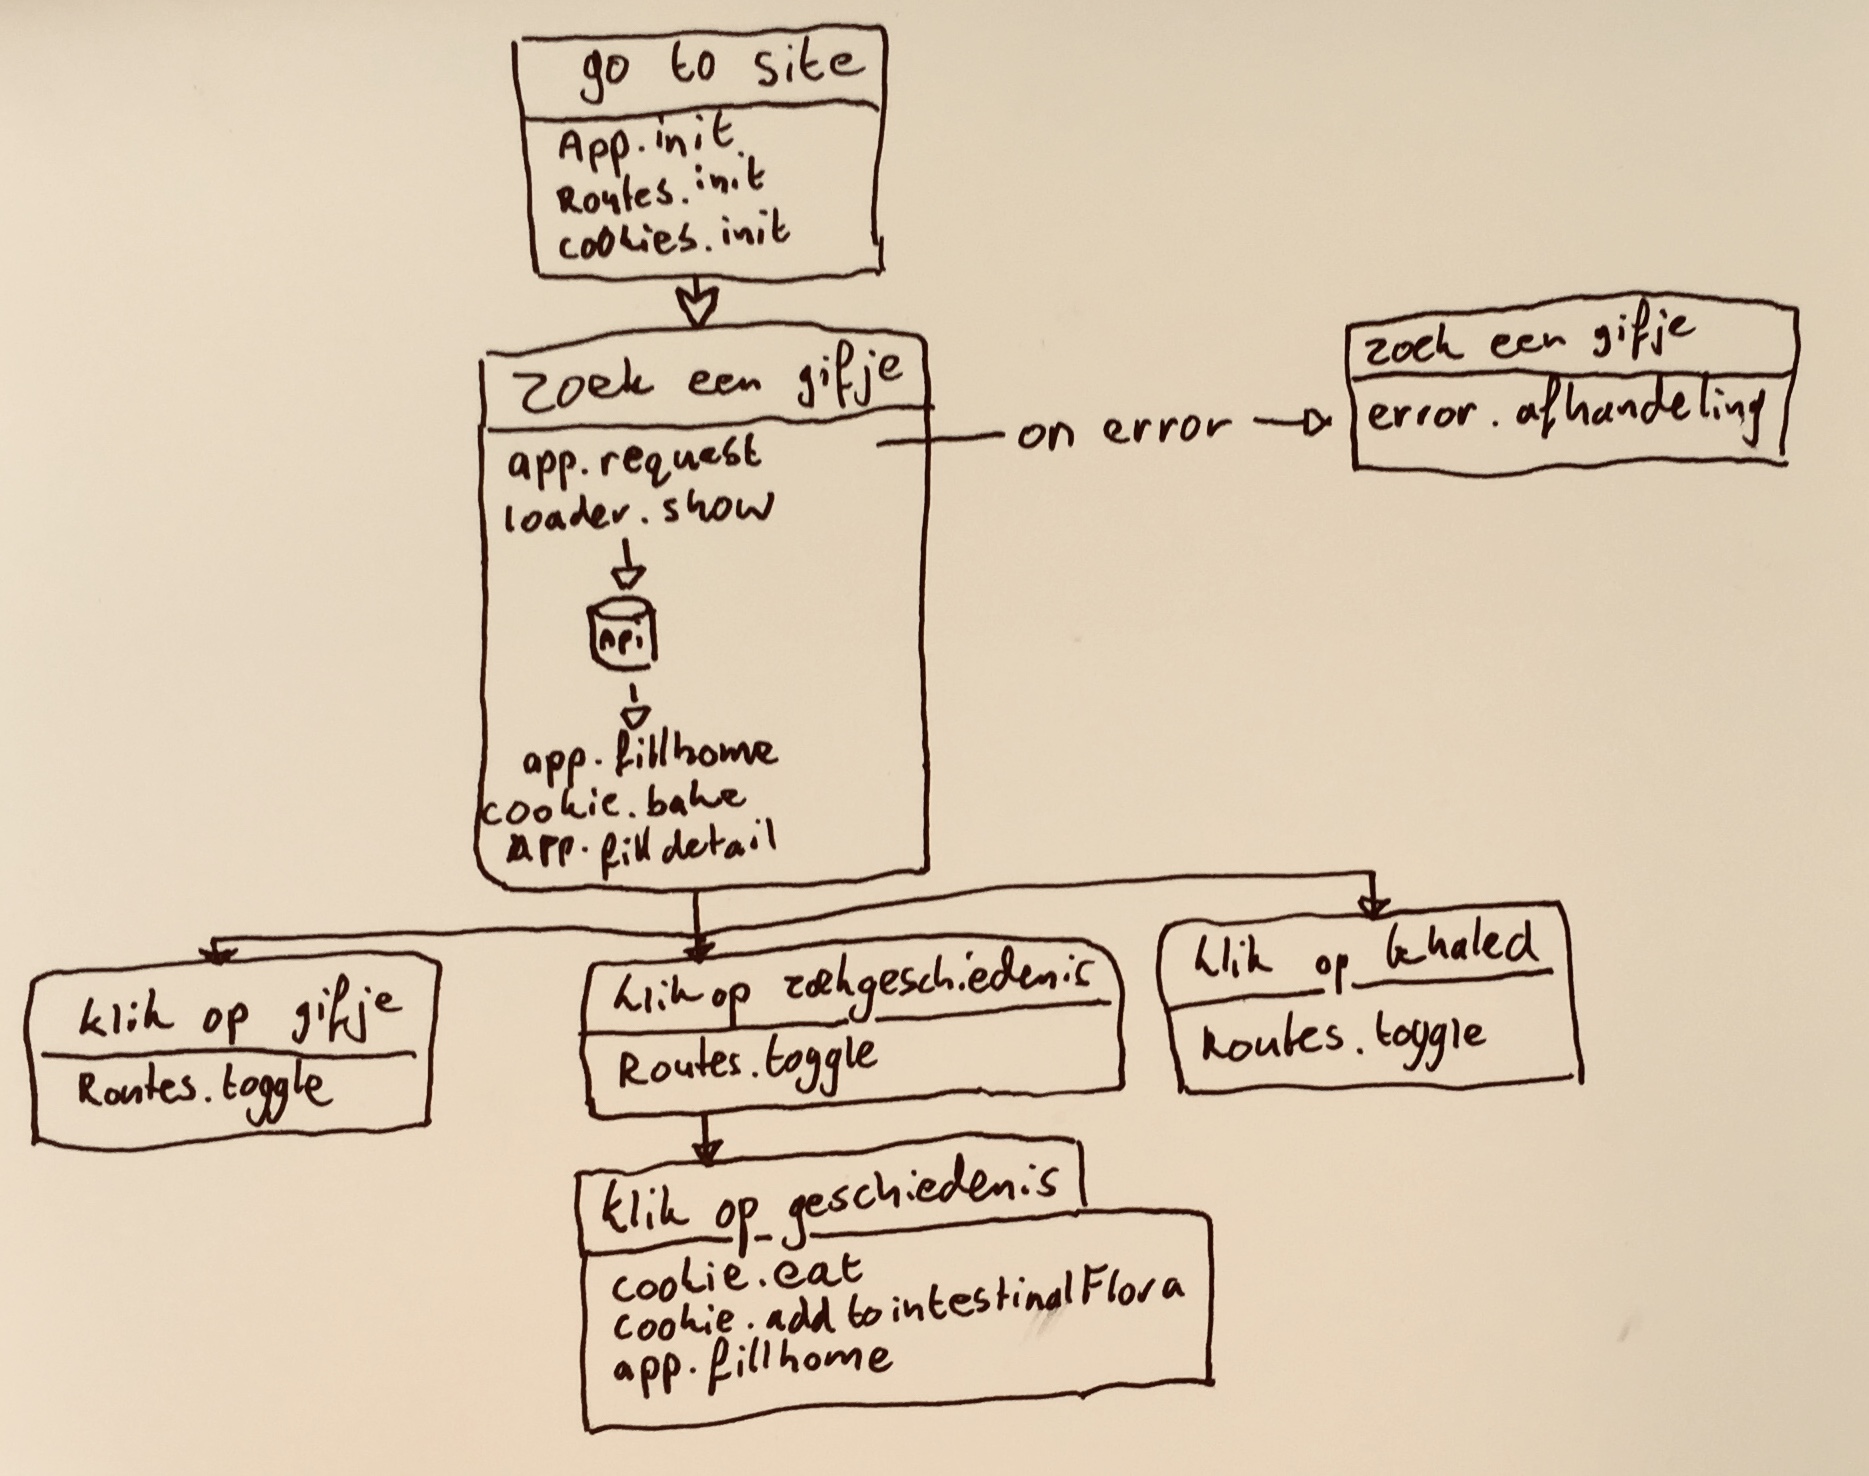 go to site
App.init
Routes.init
cookies.init
zoek een gifje
app.request
loader.show
Api
app.fillhome
cookie.bake
App.filldetail
on error
zoek een gifje
error.afhandeling
klik op gifje
Routes.toggle
klik op zoekgeschiedenis
Routes.toggle
klik op khaled
Routes.toggle
klik op geschiedenis
cookie.eat
cookie.add to intestinalFlora
app.fillhome